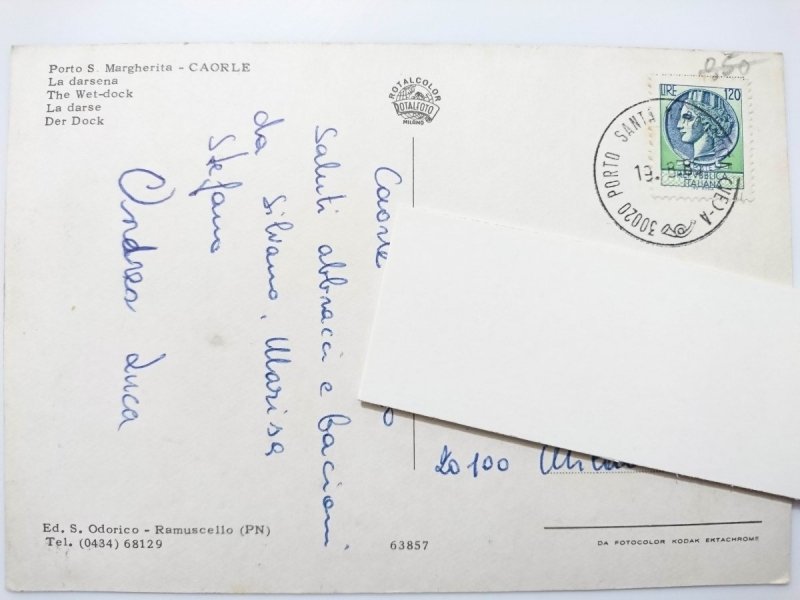 Porto S. Margherita - CAORLE
La darsena
The Wet-dock
La darse
Der Dock
ROTALCOLOR
ROTALFOTO
MILANO
0,50
LIRE 120
REPUBBLICA
ITALIANA
30020 PORTO SANTA
(VE)-A
Caorle
Saluti abbracci e bacioni
da Silvano, Marisa
Stefano
Andrea Luca
20100
Ed. S. Odorico - Ramuscello (PN)
Tel. (0434) 68129
63857
DA FOTOCOLOR KODAK EKTACHROME